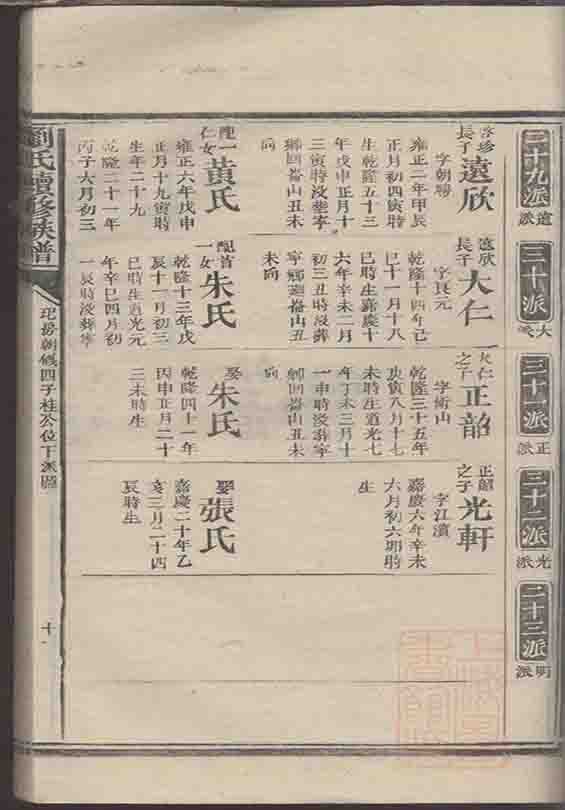 二十九派
遠派
三十派
大派
三十一派
正派
三十二派
光派
三十三派
明派
啓珍
長子
遠欣
字朝聘
雍正二年甲辰
正月初四寅時
生乾隆五十三
年戊申正月十
三寅時没葬寧
鄉回崙山丑未
向
配黄氏
一女
雍正六年戊申
正月十九寅時
生年二十九
乾隆二十一年
丙子六月初三
遠欣
長子
大仁
字良元
乾隆十四年己
巳十一月十八
巳時生嘉慶十
六年辛未二月
初三丑時没葬
寧鄉廻崙山丑
未向
朱氏
一女
乾隆十三年戊
辰十一月初三
巳時生道光元
年辛巳四月初
一辰時没葬寧
大仁
之子
正韶
字術山
乾隆三十五年
庚寅八月十七
未時生道光七
年丁亥三月十
一申時没葬寧
鄉回崙山丑未
向
娶朱氏
乾隆四十一年
丙申正月二十
三未時生
正韶
之子
光軒
字江濱
嘉慶六年辛未
六月初六卯時
生
娶張氏
嘉慶二十年乙
亥三月二十四
辰時生
劉氏續修族譜
玘房朝儀四子桂公位下派圖
十一